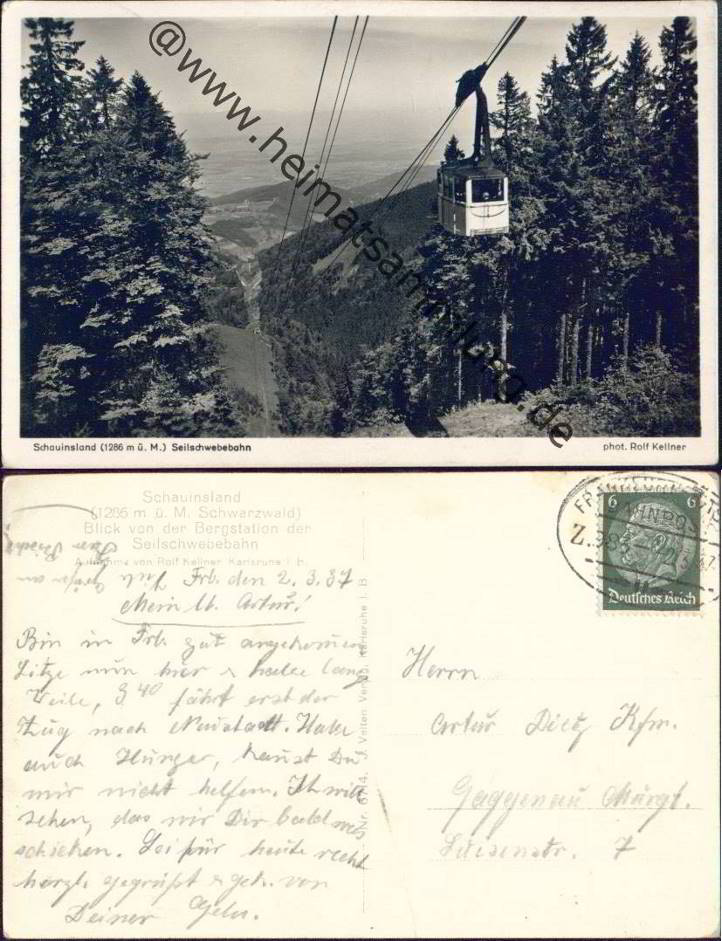 @www.heimatsammlung.de
Schauinsland (1286 m ü. M.) Seilschwebebahn
phot. Rolf Kellner
Schauinsland
(1286 m ü. M. Schwarzwald)
Blick von der Bergstation der
Seilschwebebahn
Aufnahme von Rolf Kellner Karlsruhe i. B.
Frb. den 2. 3. 37
Mein lb. Artur!
Bin in Frb. gut angekommen
Sitze nun hier & habe lang
Weile, 3 40 fährt erst der
Zug nach Neustadt. Habe
auch Hunger, kannst Du
mir nicht helfen. Ich will
sehen, das wir Dir bald was
schicken. Sei für heute recht
herzl. gegrüßt & gek. von
Deiner
Nr. 6714. J. Velten Verlag, Karlsruhe i. B.
6 6
Deutsches Reich
BAHNPOST
Herrn
Artur Dietz Kfm.
Gaggenau Murgt.
Luisenstr. 7